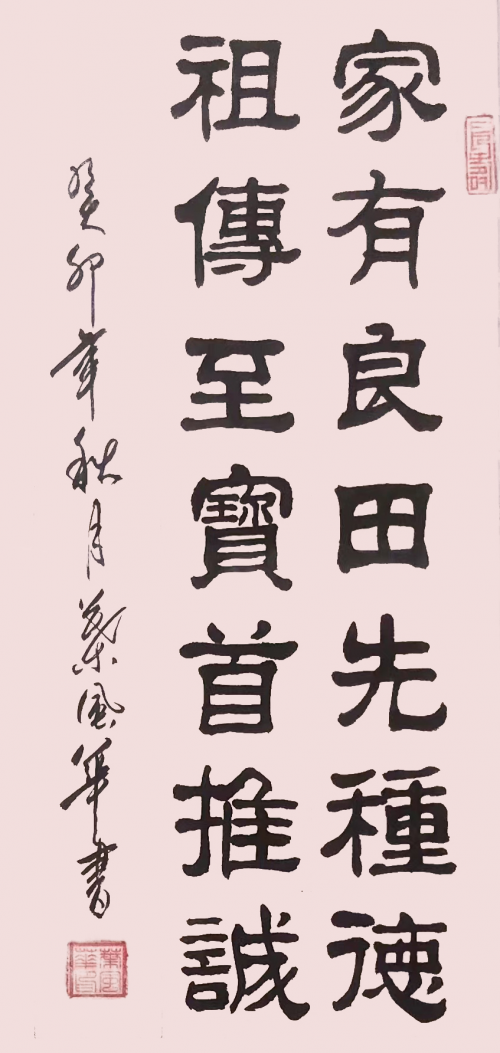 家有良田先種德
祖傳至寶首推誠
癸卯年秋月葉風華書